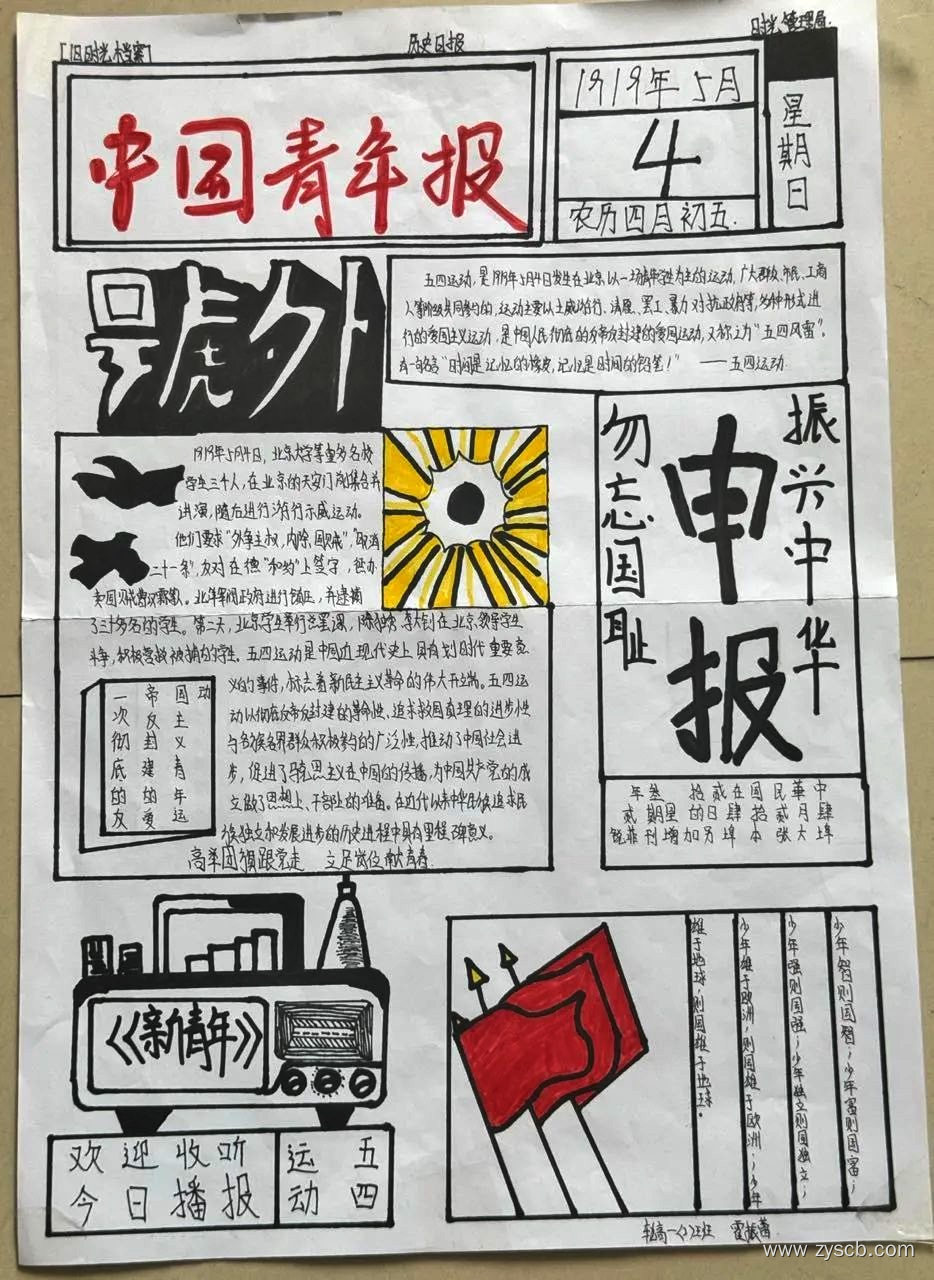 [旧时光档案]
历史日报
时光管理局
中国青年报
1919年5月
4
农历四月初五.
星期日
號外
五四运动,是1919年5月4日发生在北京以一场青年学生为主的运动,广大群众、市民、工商
人等阶级共同参与的,运动主要以示威游行、请愿、罢工、暴力对抗政府等,多种形式进
行的爱国主义运动,是中国人民彻底的反帝反封建的爱国运动,又称之为“五四风雷”。
有一句名言“时间是记忆的橡皮,记忆是时间的铅笔!” ——五四运动.
1919年5月4日,北京大学等重多名校
学生三千人,在北京的天安门前集会并
进演,随后进行游行示威运动。
他们要求“外争主权,内除国贼”,“取消
二十一条”,反对在德“和约”上签字,
北洋军阀政府进行镇压,并逮捕
了三十多名的学生。第二天,北京学生举行总罢课,陈独秀,李大钊在北京领导学生
斗争,积极营救被捕的学生。五四运动是中国近现代史上具有划时代重要意
义的事件,标志着新民主主义革命的伟大开端。五四运
动以彻底反帝反封建的革命性、追求救国真理的进步性
与各族各界群众积极参与的广泛性,推动了中国社会进
步,促进了马克思主义在中国的传播,为中国共产党的成
立做了思想上、干部上的准备。在近代以来中华民族追求民
族独立和发展进步的历史进程中具有里程碑意义。
高举团旗跟党走 立足岗位献青春.
动
国主义青年运
帝反封建的爱
一次彻底的反
振兴中华
申报
勿忘国耻
年叁 拾贰在国民華中
贰期星的日肆拾贰月肆
刊增加另埠本张大埠
《新青年》
欢迎收听
今日播报
五四
运动
少年智则国智;少年富则国富;
少年强则国强;少年独立则国独立;
少年雄于欧洲,则国雄于欧洲;少年
雄于地球,则国雄于地球。
高一(2)班
www.zyscb.com